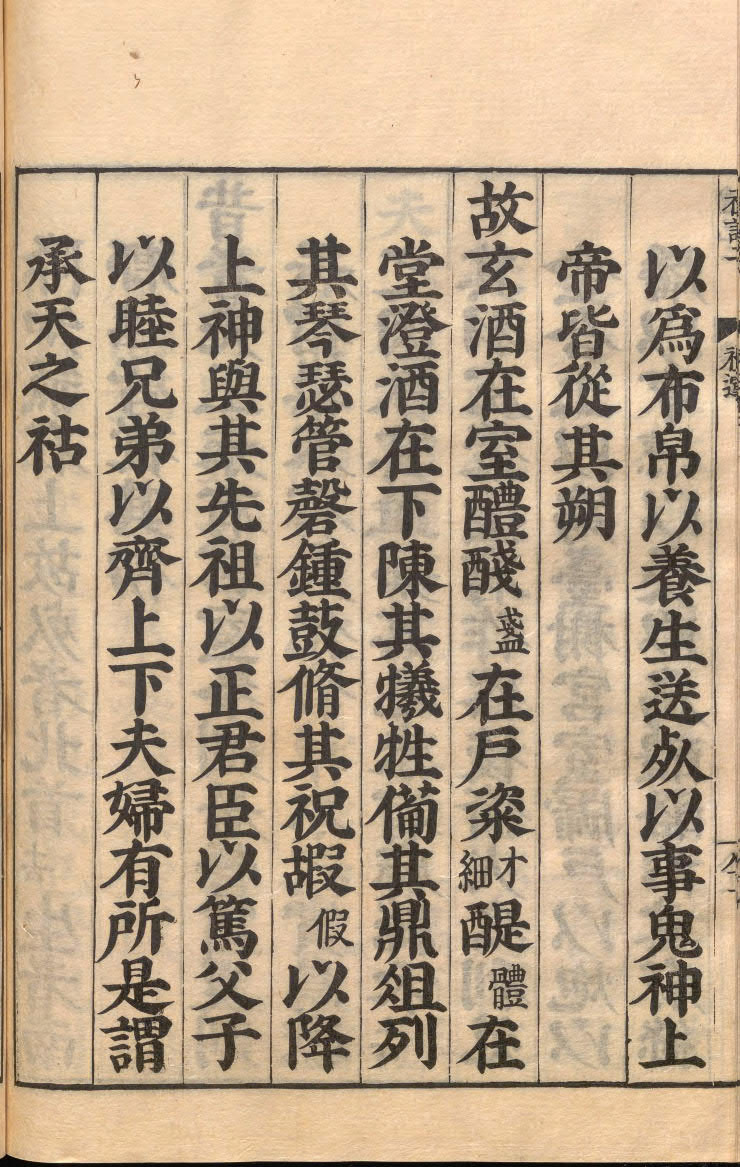 以爲布帛以養生送死以事鬼神上
帝皆從其朔
故玄酒在室醴醆盞在戶粢才細醍體在
堂澄酒在下陳其犧牲備其鼎俎列
其琴瑟管磬鍾鼓脩其祝嘏假以降
上神與其先祖以正君臣以篤父子
以睦兄弟以齊上下夫婦有所是謂
承天之祜